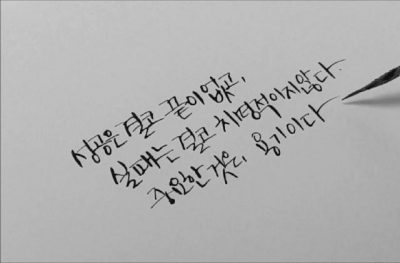 성공은 결코 끝이 없고,
실패는 결코 치명적이지않다.
중요한 것은, 용기이다